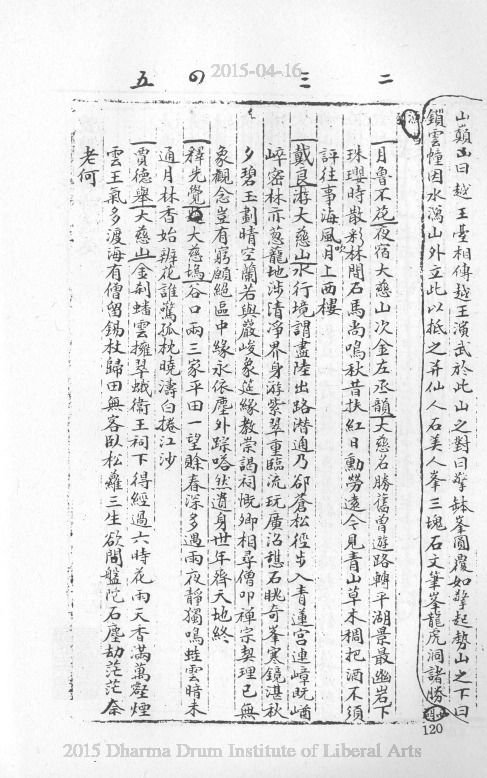 2015-04-16
五 四 三 二
山巔曰越王臺相傳越王演武於此山之對曰擎缽峯圓覆如擎起勢山之下曰
鎖雲幢因水瀉山外立此以抵之并仙人石美人峯三塊石文筆峯龍虎洞諸勝
月魯不花夜宿大慈山次金左丞韻大慈名勝舊曾遊路轉平湖景最幽岩下
珠瓔時散彩林間石馬尚鳴秋昔扶紅日動勞遠今見青山草木稠把酒不須
評往事海風吹月上西樓
戴良游大慈山水行境謂盡陸出路潛通乃卻蒼松徑步入青蓮宮連嶂既崷
崪密林亦葱蘢地涉清淨界身游紫翠重臨流玩廣沼憩石眺奇峯寒鏡湛秋
夕碧玉劃晴空蘭若與嚴峻象筵緣教崇謁祠慨卿相尋僧叩禪宗契理已無
象觀念豈有窮願絕區中緣永依塵外踪嗒然遺身世年齊天地終
釋先覺大慈塢谷口兩三家平田一望賒春深多遇雨夜靜獨鳴蛙雲暗未
通月林香始辨花誰驚孤枕曉濤白捲江沙
賈德舉大慈山金刹蟠雲擁翠蛾衛王祠下得經過六時花雨天香滿萬壑煙
雲王氣多渡海有僧留錫杖歸田無客臥松蘿三生欲問盤陀石塵劫茫茫奈
老何
120
2015 Dharma Drum Institute of Liberal Arts